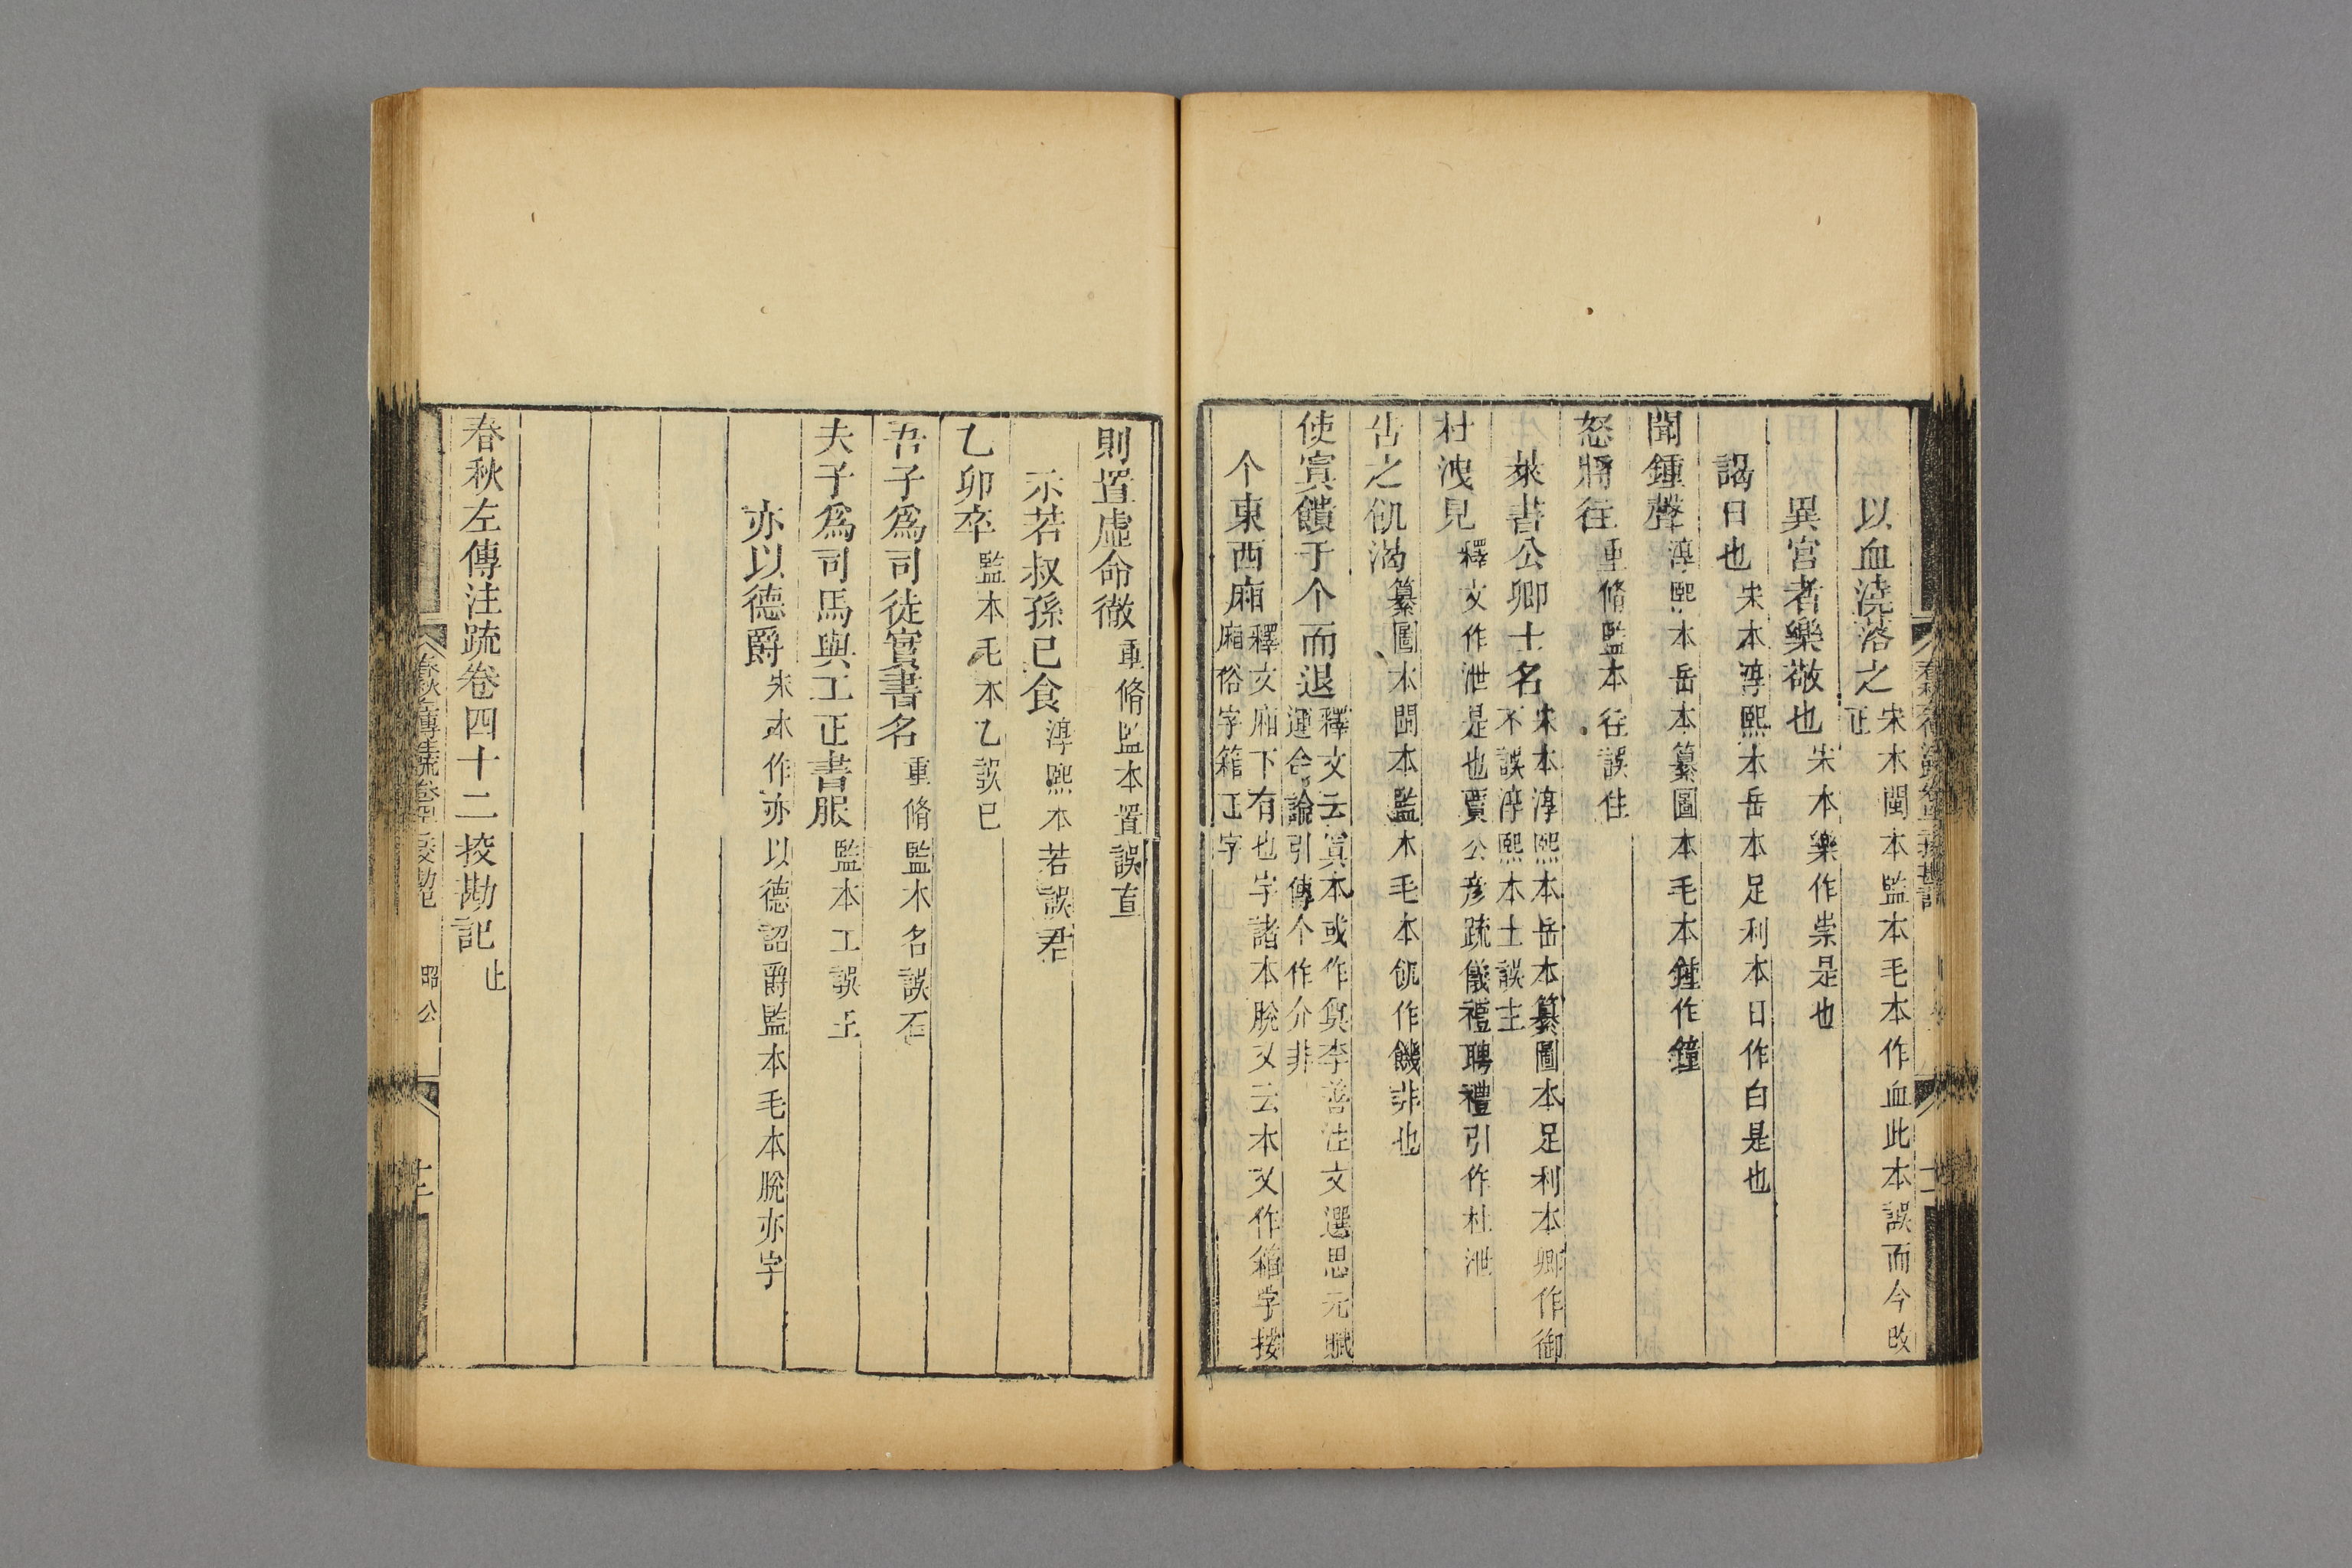 以血澆落之宋本閩本監本毛本作血此本誤而今改正
異宮者樂敬也宋本樂作崇是也
謁曰也宋本淳熙本岳本足利本日作白是也
聞鍾聲淳熙本岳本纂圖本毛本鍾作鐘
怒將往重脩監本往誤住
萊書公卿士名宋本淳熙本岳本纂圖本足利本卿作御不誤淳熙本士誤主
杜洩見釋文作泄是也賈公彥疏儀禮聘禮引作杜泄
古之飢渴纂圖本閩本監本毛本飢作饑非也
使寘饋于个而退釋文云寘本或作奠李善注文選思元賦運命論引傳个作介非
个東西廂釋文廂下有也字諸本脫又云本又作箱字按廂俗字箱正字
則置虛命徹重脩監本置誤直
示若叔孫已食淳熙本若誤君
乙卯卒監本毛本乙誤巳
吾子爲司徒實書名重脩監本名誤石
夫子爲司馬與工正書服監本工誤王
亦以德爵宋本作亦以德詔爵監本毛本脫亦字
春秋左傳注疏卷四十二挍勘記止
春秋左傳注疏卷四十二挍勘記 昭公